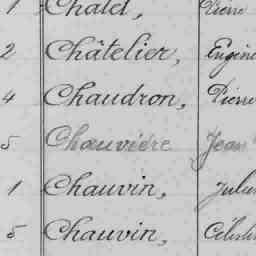 1 Chalet, Pierre
2 Châtelier, Eugène
4 Chaudron, Pierre
5 Chauvière Jean
1 Chauvin,
5 Chauvin,